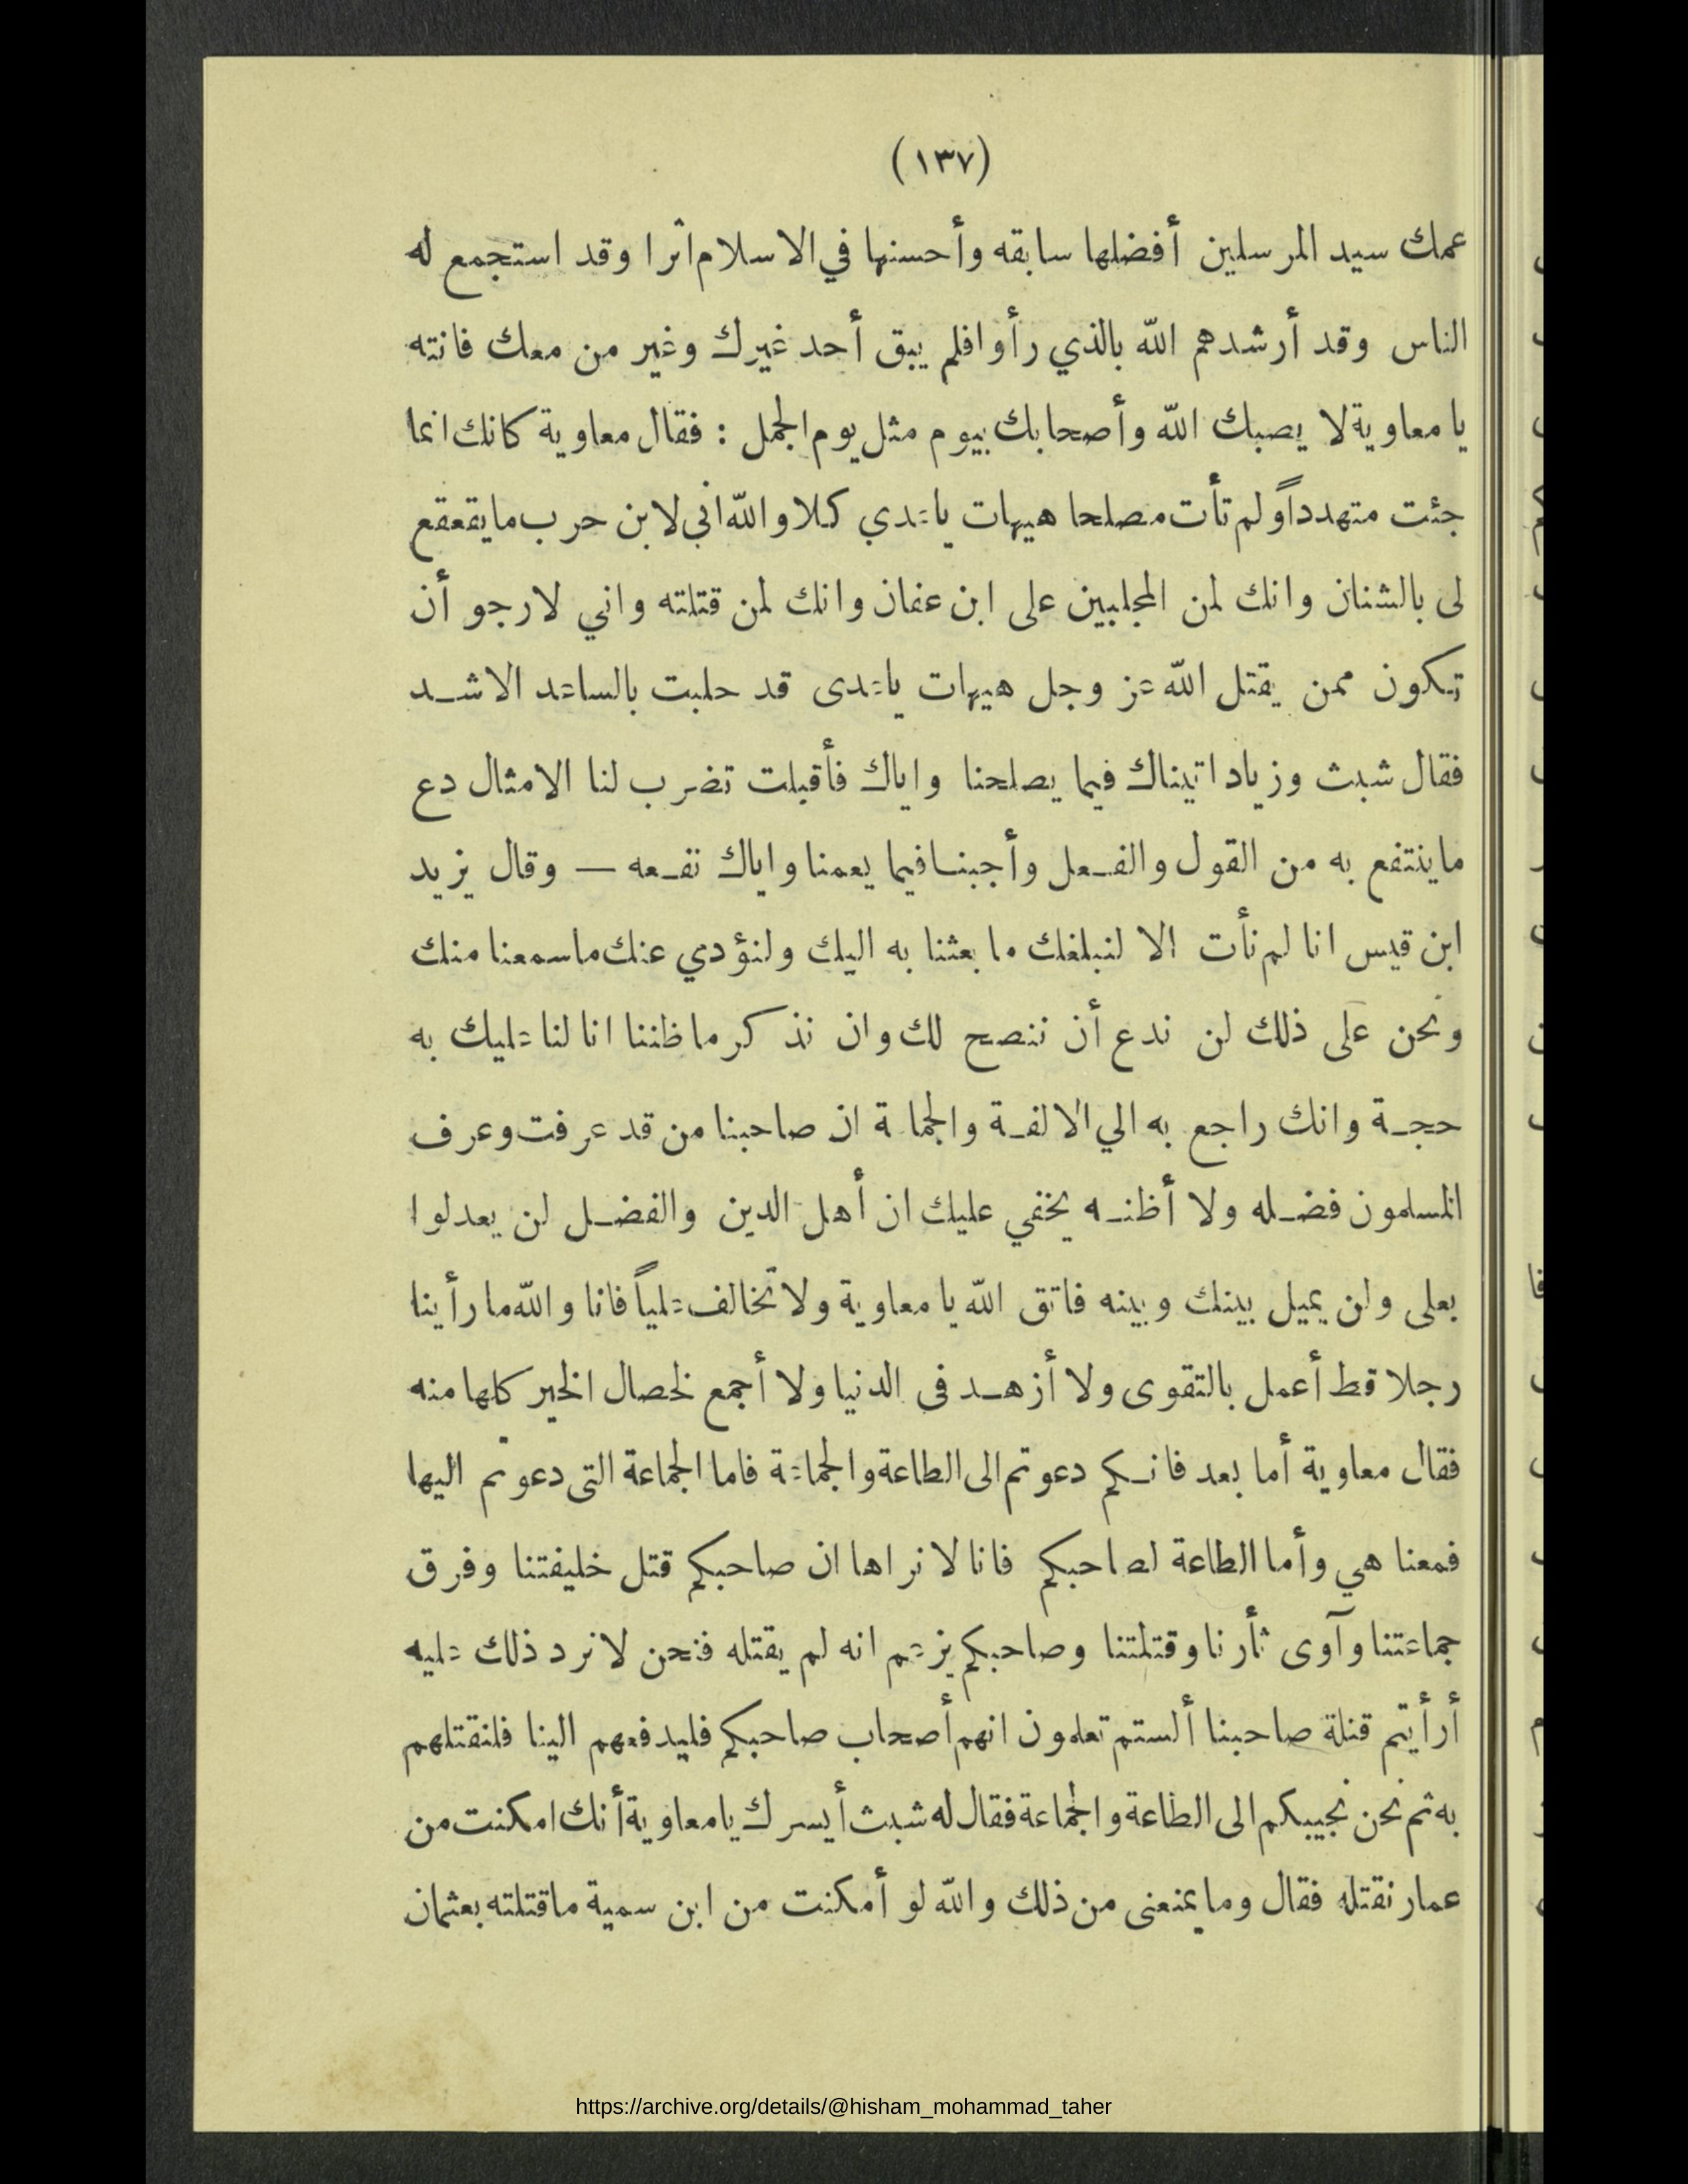 (١٣٧)
عمك سيد المرسلين أفضلها سابقه وأحسنها في الاسلام اثرا وقد استجمع له
الناس وقد أرشدهم الله بالذي رأوا فلم يبق أحد غيرك وغير من معك فانته
يا معاوية لا يصبك الله وأصحابك بيوم مثل يوم الجمل : فقال معاوية كانك انما
جئت متهدداً ولم تأت مصلحا هيهات ياعدي كلا والله اني لابن حرب ما يقعقع
لى بالشنان وانك لمن المجلبين على ابن عفان وانك لمن قتلته واني لارجو أن
تكون ممن يقتل الله عز وجل هيهات ياعدى قد حلبت بالساعد الاشد
فقال شبث وزياد اتيناك فيما يصلحنا واياك فأقبلت تضرب لنا الامثال دع
ما ينتفع به من القول والفعل وأجبنا فيما يعمنا واياك نفعه — وقال يزيد
ابن قيس انا لم نأت الا لنبلغك ما بعثنا به اليك ولنؤدي عنك ما سمعنا منك
ونحن على ذلك لن ندع أن ننصح لك وان نذكر ما ظننا انا لنا عليك به
حجة وانك راجع به الي الالفة والجماعة ان صاحبنا من قد عرفت وعرف
المسلمون فضله ولا أظنه يخفي عليك ان أهل الدين والفضل لن يعدلوا
بعلى ولن يميل بينك وبينه فاتق الله يا معاوية ولا تخالف علياً فانا والله ما رأينا
رجلا قط أعمل بالتقوى ولا أزهد فى الدنيا ولا أجمع لخصال الخير كلها منه
فقال معاوية أما بعد فانكم دعوتم الى الطاعة والجماعة فاما الجماعة التى دعوتم اليها
فمعنا هي وأما الطاعة لصاحبكم فانا لا نراها ان صاحبكم قتل خليفتنا وفرق
جماعتنا وآوى ثأرنا وقتلتنا وصاحبكم يزعم انه لم يقتله فنحن لا نرد ذلك عليه
أرأيتم قتلة صاحبنا ألستم تعلمون انهم أصحاب صاحبكم فليدفعهم الينا فلنقتلهم
به ثم نحن نجيبكم الى الطاعة والجماعة فقال له شبث أيسرك يا معاوية أنك امكنت من
عمار نقتله فقال وما يمنعنى من ذلك والله لو أمكنت من ابن سمية ما قتلته بعثمان
https://archive.org/details/@hisham_mohammad_taher